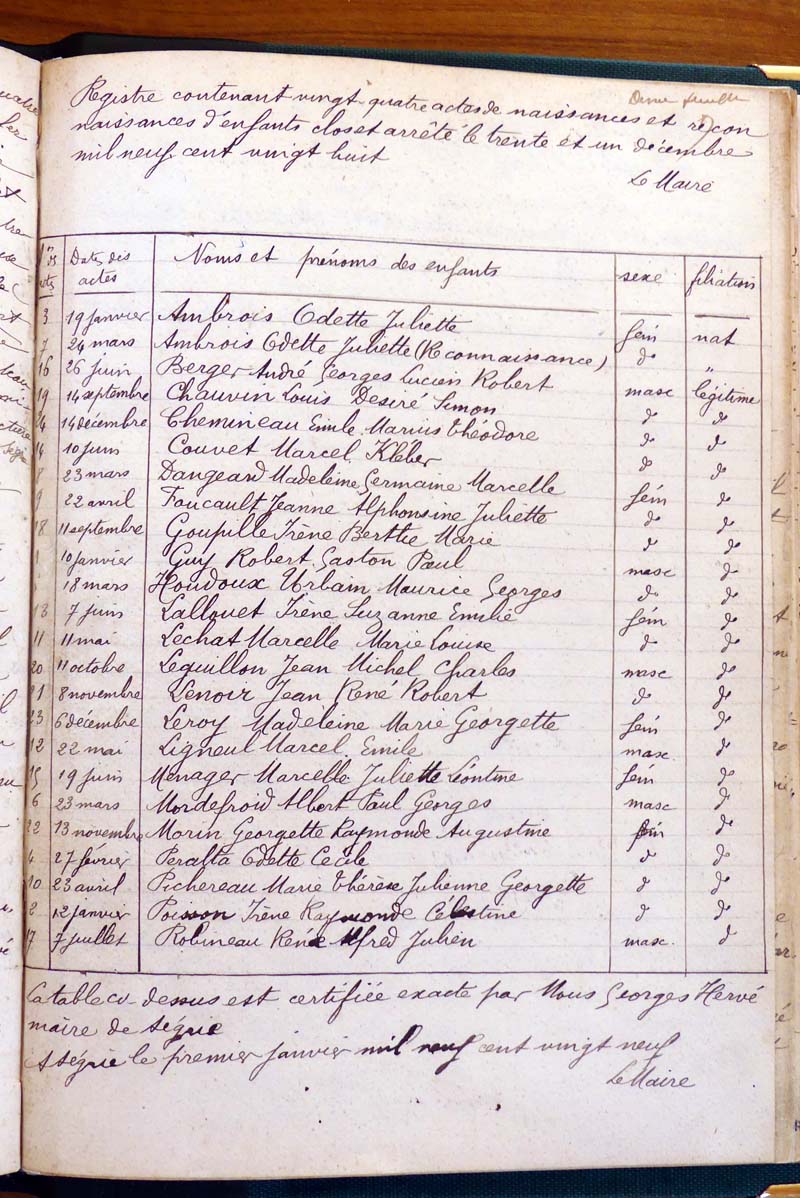 Registre contenant vingt-quatre actes de naissances et recon
naissances d'enfants clos et arrêté le trente et un décembre
mil neuf cent vingt huit
Le Maire
Nos des actes Dates des actes Noms et prénoms des enfants sexe filiation
3 19 janvier Ambrois Odette Juliette fém nat
7 24 mars Ambrois Odette Juliette (Reconnaissance) do "
16 26 juin Berger André Georges Lucien Robert masc légitime
19 14 septembre Chauvin Louis Desiré Simon do do
24 14 décembre Chemineau Emile Marius Théodore do do
14 10 juin Couvet Marcel Kléber do do
8 23 mars Dangeard Madeleine Germaine Marcelle fém do
9 22 avril Foucault Jeanne Alphonsine Juliette do do
18 11 septembre Goupille Irène Berthe Marie do do
1 10 janvier Guy Robert Gaston Paul masc do
18 mars Houdoux Urbain Maurice Georges do do
13 7 juin Lallouet Irène Suzanne Emilie fém do
11 11 mai Lechat Marcelle Marie Louise do do
20 11 octobre Leguillon Jean Michel Charles masc do
21 8 novembre Lenoir Jean René Robert do do
23 6 décembre Leroy Madeleine Marie Georgette fém do
12 22 mai Ligneul Marcel Emile masc. do
15 19 juin Menager Marcelle Juliette Léontine fém do
6 23 mars Mordefroid Albert Paul Georges masc do
22 13 novembre Morin Georgette Raymonde Augustine fém do
4 27 février Peralta Odette Cécile do do
10 23 avril Pichereau Marie Thérèse Julienne Georgette do do
2 12 janvier Poisson Irène Raymonde Célestine do do
17 7 juillet Robineau René Alfred Julien masc. do
La table ci-dessus est certifiée exacte par Nous Georges Hervé
maire de Ségrie
A Ségrie le premier janvier mil neuf cent vingt neuf
Le Maire